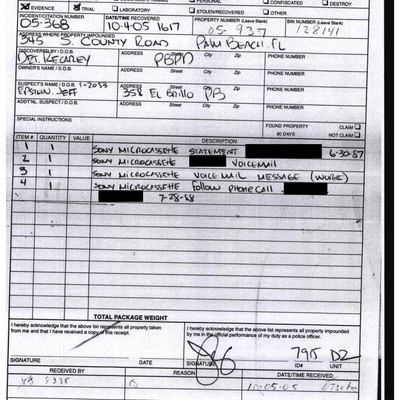 PERSONAL CONFISCATED DESTROY
EVIDENCE TRIAL LABORATORY STOLEN/RECOVERED OTHER
INCIDENT/CITATION NUMBER DATE/TIME RECOVERED PROPERTY NUMBER (Leave Blank) BIN NUMBER (Leave Blank)
05-368 10-4-05 1617 05-937 128141
ADDRESS WHERE PROPERTY IMPOUNDED
345 S. COUNTY ROAD PALM BEACH, FL
DISCOVERED BY/D.O.B. ADDRESS Street City Zip PHONE NUMBER
DET. RECAREY PBPD
OWNER'S NAME/D.O.B. ADDRESS Street City Zip PHONE NUMBER
SUSPECT'S NAME/D.O.B. ADDRESS Street City Zip PHONE NUMBER
JEFF 358 EL BRILLO PB
ADDT'NL. SUSPECT/D.O.B. ADDRESS Street City Zip PHONE NUMBER
SPECIAL INSTRUCTIONS
FOUND PROPERTY CLAIM
90 DAYS NOT CLAIM
ITEM # QUANTITY VALUE DESCRIPTION
1 1 SONY MICROCASSETTE STATEMENT 6-30-87
2 1 SONY MICROCASSETTE VOICEMAIL
3 1 SONY MICROCASSETTE VOICEMAIL MESSAGE
4 1 SONY MICROCASSETTE FOLLOW PHONE CALL
7-28-88
TOTAL PACKAGE WEIGHT
I hereby acknowledge that the above list represents all property taken from me and that I have received a copy of this receipt.
I hereby acknowledge that the above list represents all property impounded by me in the official performance of my duty as a police officer.
795 D2
SIGNATURE DATE SIGNATURE ID# UNIT
RECEIVED BY REASON DATE
10-05-05